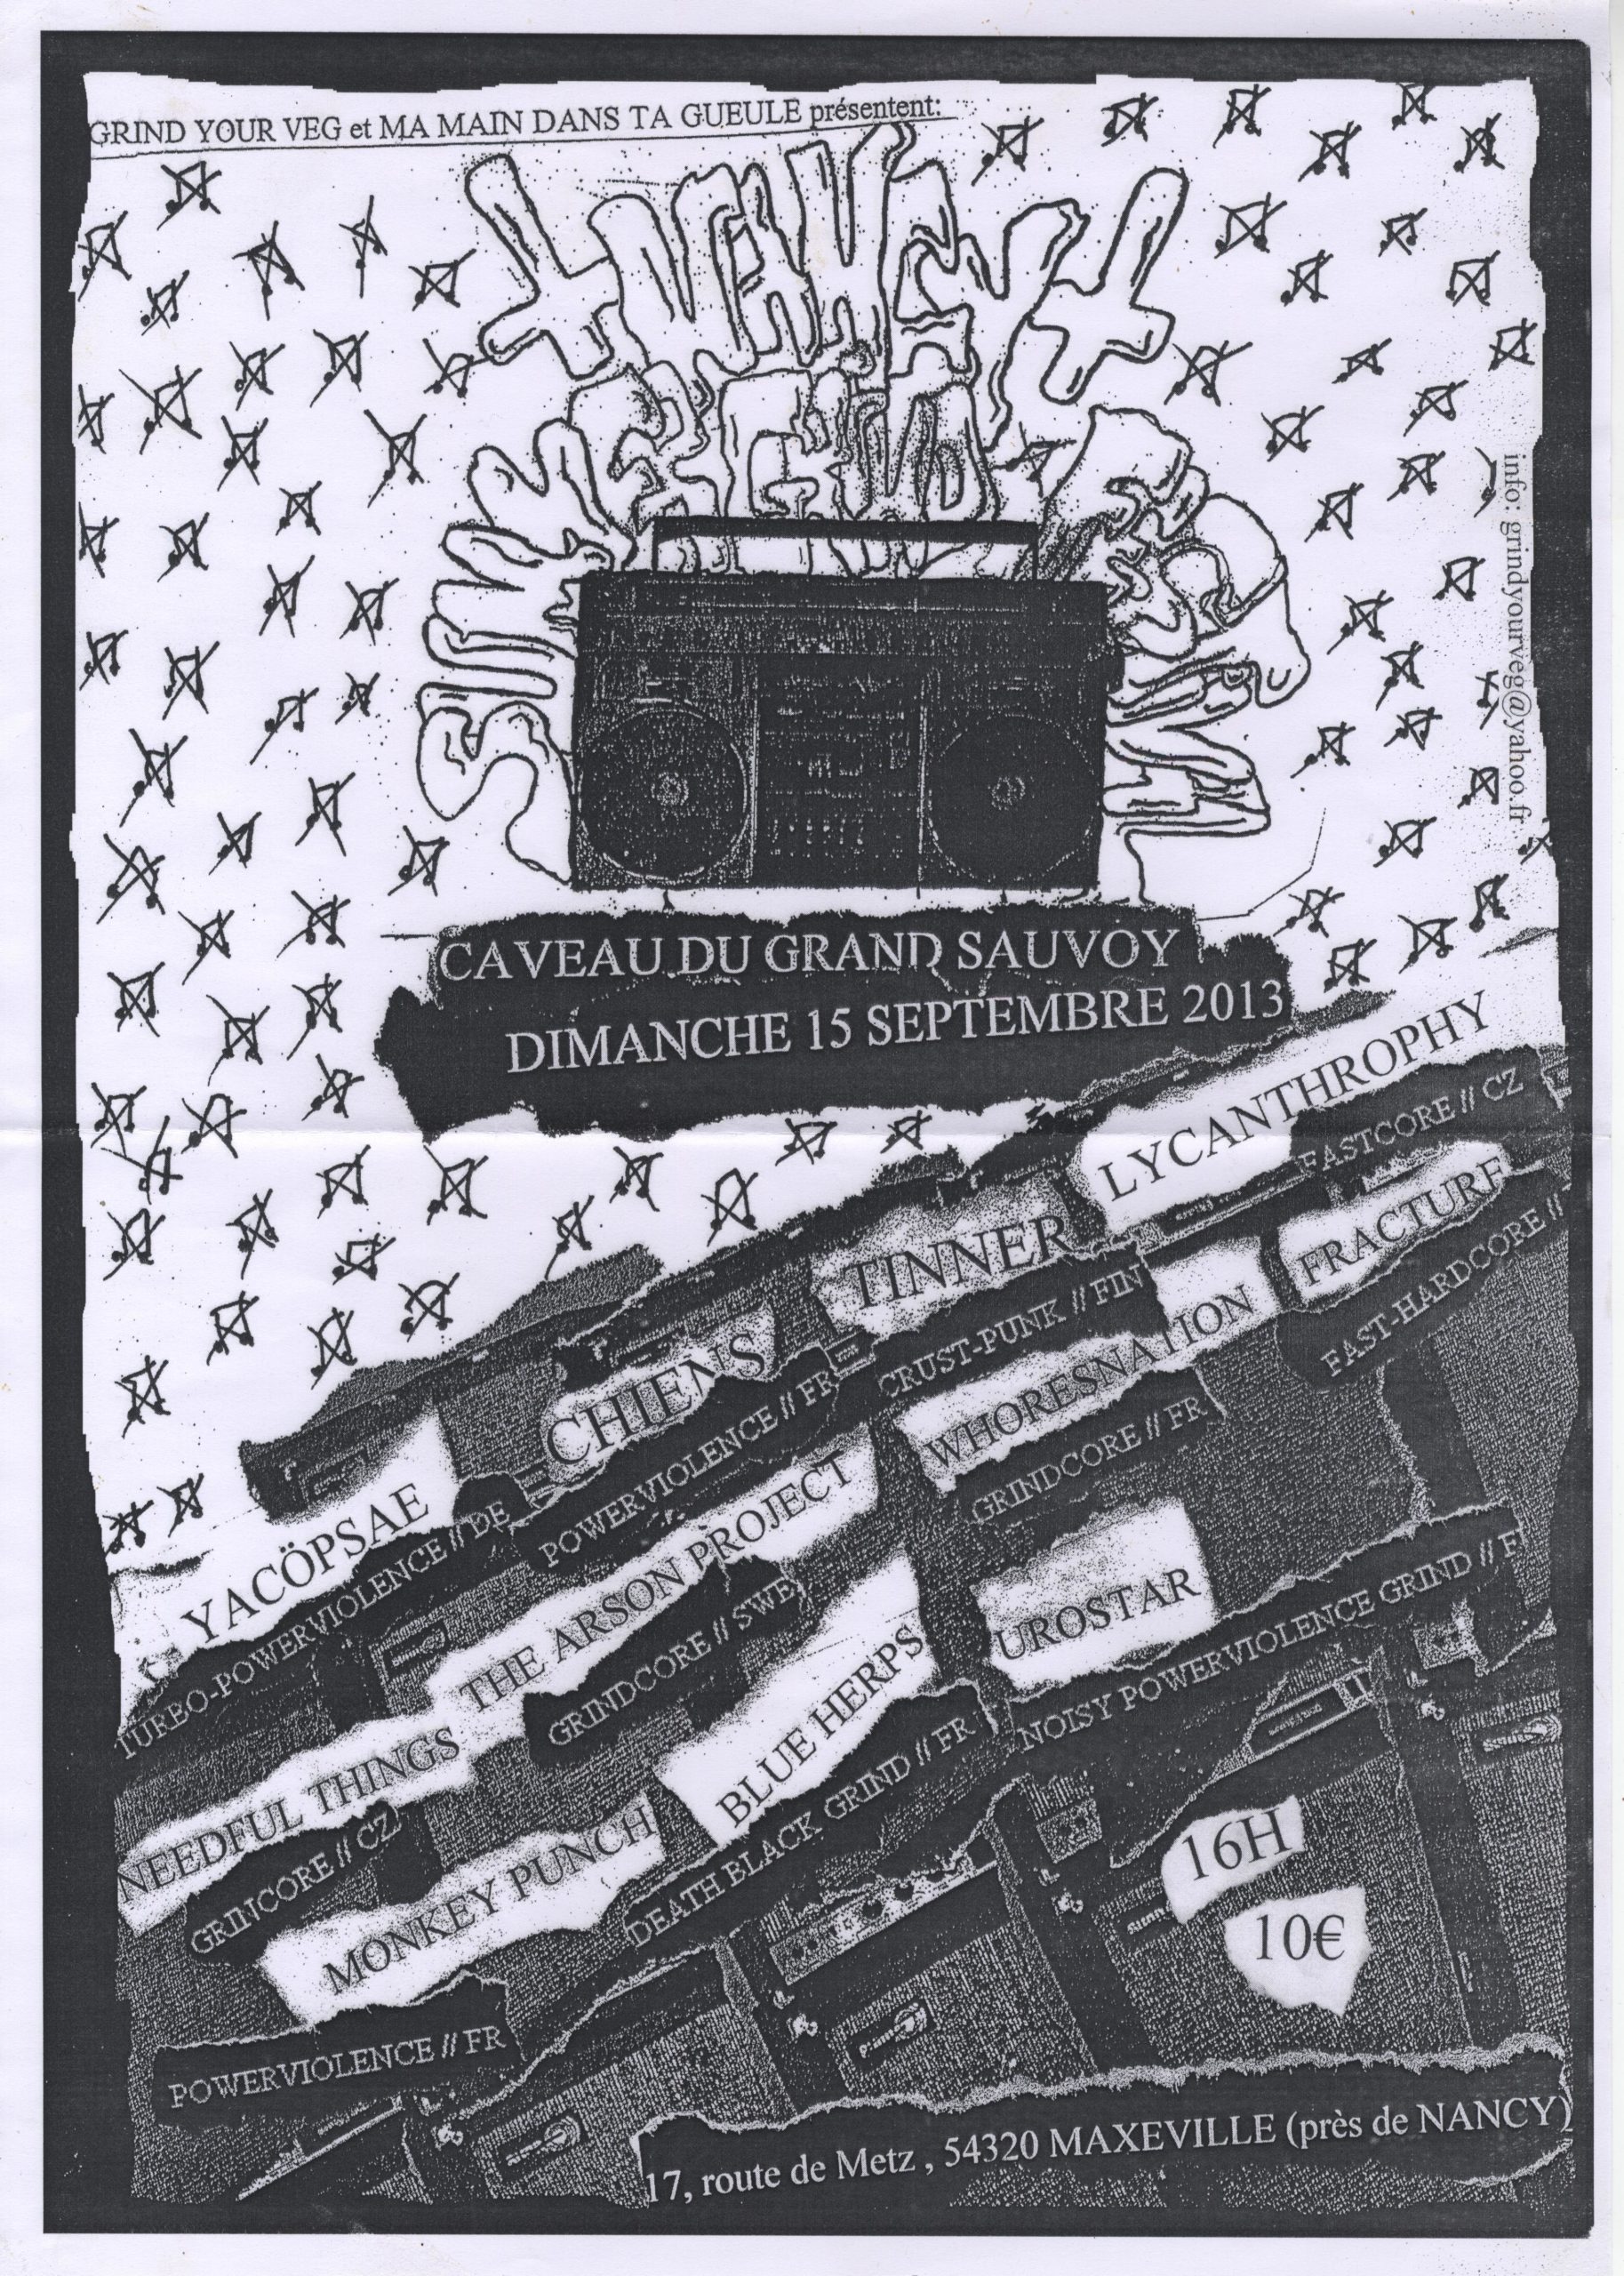 GRIND YOUR VEG et MA MAIN DANS TA GUEULE présentent:
NANCY
SUMMER GRIND
info: grindyourveg@yahoo.fr
CAVEAU DU GRAND SAUVOY
DIMANCHE 15 SEPTEMBRE 2013
LYCANTHROPHY
FASTCORE // CZ
TINNER
CRUST-PUNK // FIN
FRACTURE
FAST-HARDCORE //
CHIENS
POWERVIOLENCE // FR
WHORESNATION
GRINDCORE // FR
YACÖPSAE
TURBO-POWERVIOLENCE // DE
THE ARSON PROJECT
GRINDCORE // SWE
UROSTAR
NOISY POWERVIOLENCE GRIND // F
NEEDFUL THINGS
GRINCORE // CZ
BLUE HERPS
DEATH BLACK GRIND // FR
MONKEY PUNCH
POWERVIOLENCE // FR
16H
10€
17, route de Metz , 54320 MAXEVILLE (près de NANCY)